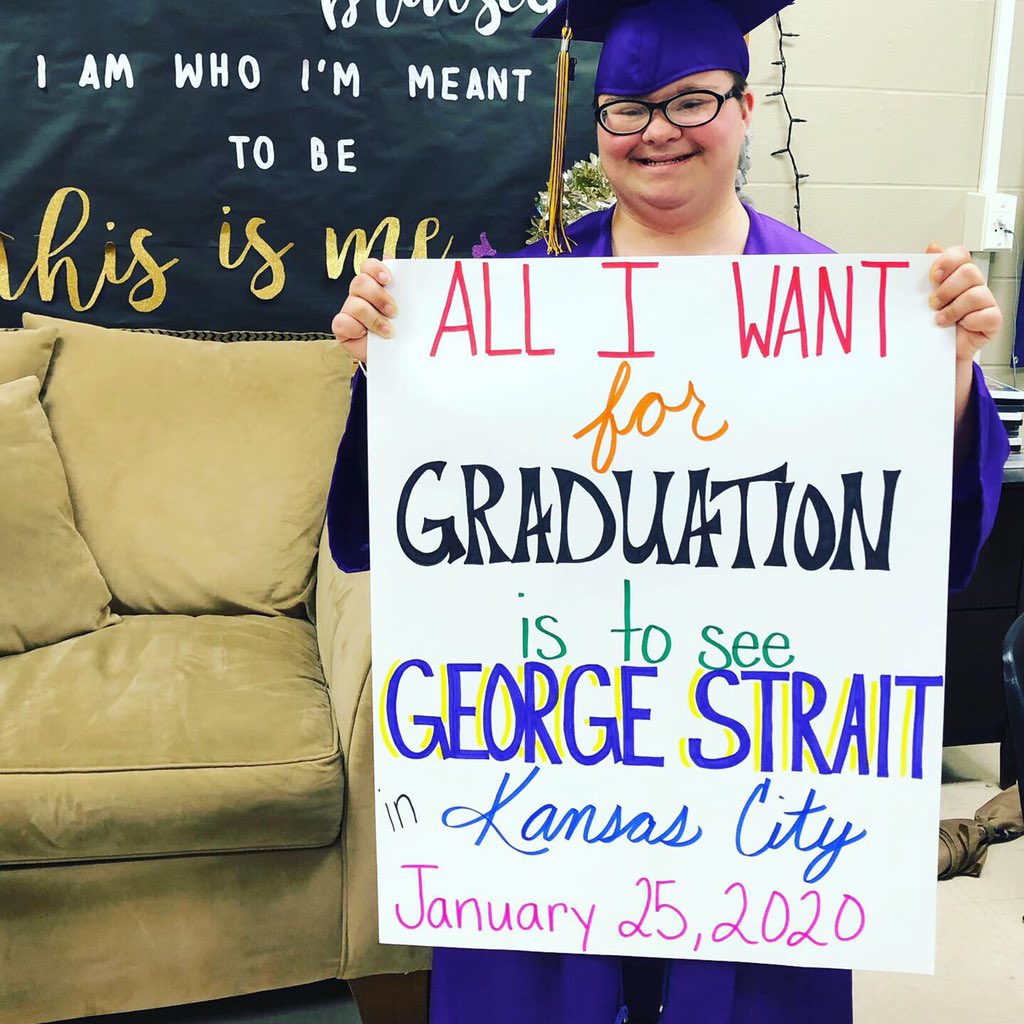 I AM WHO I'M MEANT
TO BE
this is me
ALL I WANT
for
GRADUATION
is to see
GEORGE STRAIT
in Kansas City
January 25, 2020